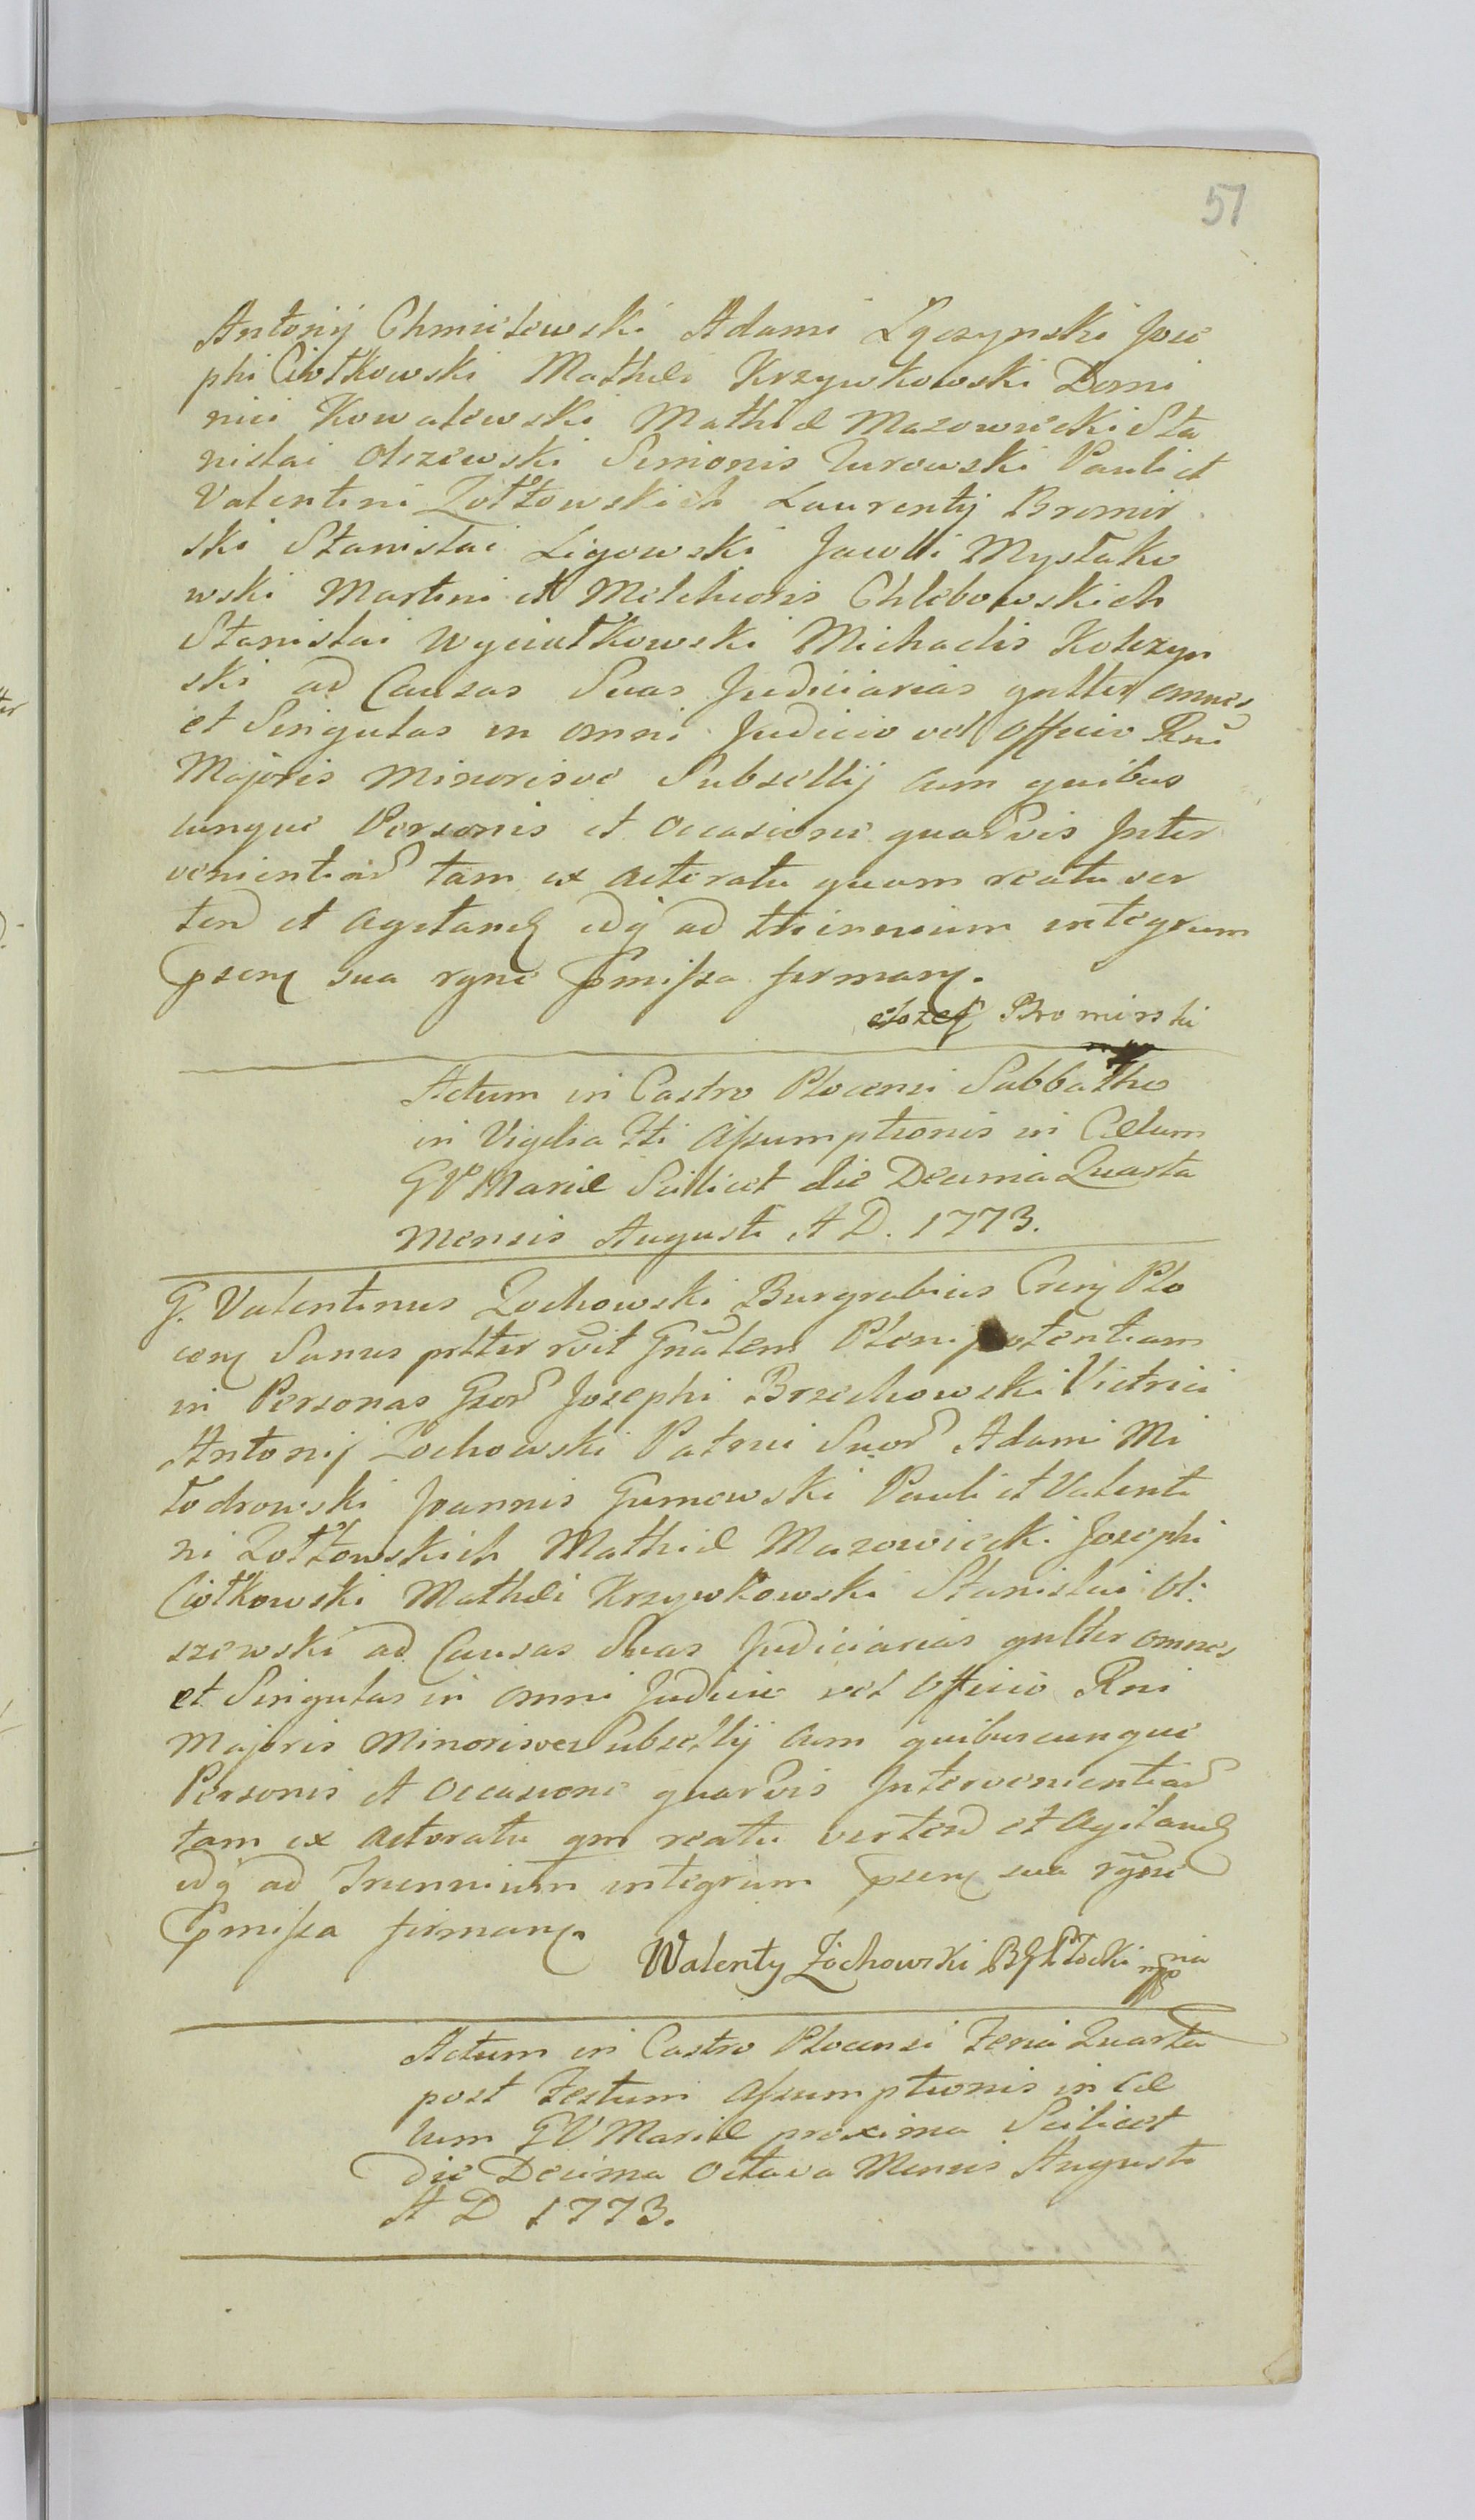 51
Antonij Chmielewski Adami Łączynski Jose
phi Ciołkowski Mathæi Krzywkowski Domi
nici Kowalewski Mathiæ Mazowiecki Sta
nislai Olszewski Simonis Zurowski Pauli et
Valentini Zołtowskich Laurentij Bromir
ski Stanislai Ligowski Jacobi Mysłako
wski Martini et Melchioris Chlebowskich
Stanislai Wyciałkowski Michaelis Kolczyn
ski ad Causas Suas Judiciarias gnlter omnes
et Singulas in omni Judicio vel Officio Rni
Majoris Minorisve Subsellij cum quibus
cunque Personis et Occasione quarvis Inter
venientiar tam ex Actoratu quam reatu ver
ten et Agitand idq ad triennium integrum
psen sua rgne pmissa firman.
Jozef Bromirski
mp
Actum in Castro Plocensi Sabbatho
in Vigilia Fti Assumptionis in Cælum
GV Mariæ Scilicet die Decima Quarta
Mensis Augusti A D. 1773.
G. Valentinus Zochowski Burgrabius Cren Plo
cen Sanus pltter rcit Gnalem Plenipotentiam
in Personas Gsor Josephi Brzechowski Vitrici
Antonij Zochowski Patrui Suor Adami Mi
łodrowski Joannis Gumowski Pauli et Valenti
ni Zołtowskich Mathiæ Mazowiecki Josephi
Ciołkowski Mathæi Krzywkowski Stanislai Ol:
szewski ad Causas Suas Judiciarias gnlter omnes
et Singulas in omni Judicio vel Officio Rni
Majoris Minorisve Subsellij cum quibuscunque
Personis et Occasione quarvis Intervenientiar
tam ex Actoratu qm reatu verten et Agitand
idq ad Triennium integrum psen sua rgne
pmissa firman.
Walenty Zochowski BG Płocki mp
Actum in Castro Plocensi Feria Quarta
post Festum Assumptionis in Cæ
lum GV Mariæ proxima Scilicet
die Decima Octava Mensis Augusti
A D 1773.